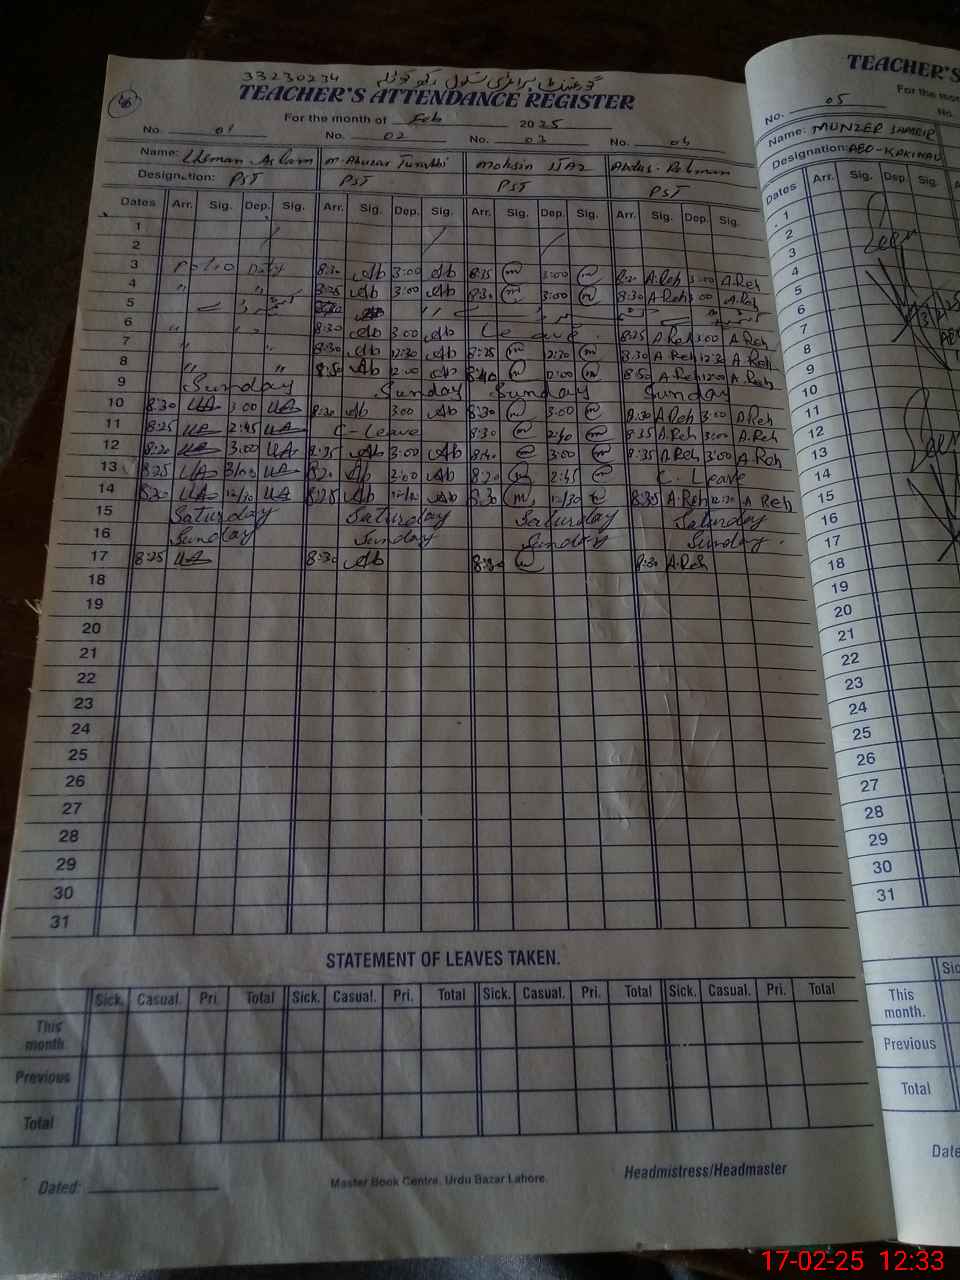 33230234 گورنمنٹ پرائمری سکول
TEACHER'S ATTENDANCE REGISTER
For the month of Feb 2025
No. 01 No. 02 No. 03 No. 04
Name: Usman Aslam M. Abuzar Turabi Mohsin Abdul Rehman
Designation: PST PST PST PST
Dates Arr. Sig. Dep. Sig. Arr. Sig. Dep. Sig. Arr. Sig. Dep. Sig. Arr. Sig. Dep. Sig.
1
2
3 Polio Duty 8:30 Ab 3:00 Ab 8:25 m 3:00 m 8:20 A.Reh 3:00 A.Reh
4 " " 8:25 Ab 3:00 Ab 8:30 m 3:00 m 8:30 A.Reh 3:00 A.Reh
5
6 " " 8:30 Ab 3:00 Ab Leave 8:25 A Reh 3:00 A Reh
7 " " 8:30 Ab 12:30 Ab 8:25 m 12:30 m 8:30 A Reh 12:30 A Reh
8 " " 8:50 Ab 12:00 Ab 8:40 m 12:00 m 8:50 A Reh 12:00 A. Reh
9 Sunday Sunday Sunday Sunday
10 8:30 UA 3:00 UA 8:30 Ab 3:00 Ab 8:30 m 3:00 m 8:30 A.Reh 3:00 A.Reh
11 8:25 UA 2:45 UA C-Leave 8:30 m 2:40 m 8:35 A.Reh 3:00 A.Reh
12 8:20 UA 3:00 UA 8:35 Ab 3:00 Ab m 3:00 m 8:35 A.Reh 3:00 A.Reh
13 8:25 UA 3:00 UA 8:20 Ab 2:00 Ab 8:20 m 2:45 m C. Leave
14 8:20 UA 12/30 UA 8:25 Ab Ab 8:30 m 12/30 m 8:35 A.Reh 12:30 A Reh
15 Saturday Saturday Saturday Saturday
16 Sunday Sunday Sunday Sunday
17 8:25 UA 8:30 Ab 8:30 m 8:30 A.Reh
18
19
20
21
22
23
24
25
26
27
28
29
30
31
STATEMENT OF LEAVES TAKEN.
Sick. Casual. Pri. Total Sick. Casual. Pri. Total Sick. Casual. Pri. Total Sick. Casual. Pri. Total
This month.
Previous
Total
Dated:
Master Book Centre, Urdu Bazar Lahore.
Headmistress/Headmaster
TEACHER'S
For the mon
No. 05 No.
Name: MUNZER SHABBIR
Designation: AEO-KAKIWALI
Dates Arr. Sig. Dep. Sig.
1
2
3
4
5
6
7
8
9
10
11
12
13
14
15
16
17
18
19
20
21
22
23
24
25
26
27
28
29
30
31
Sic
This month.
Previous
Total
Date
17-02-25 12:33